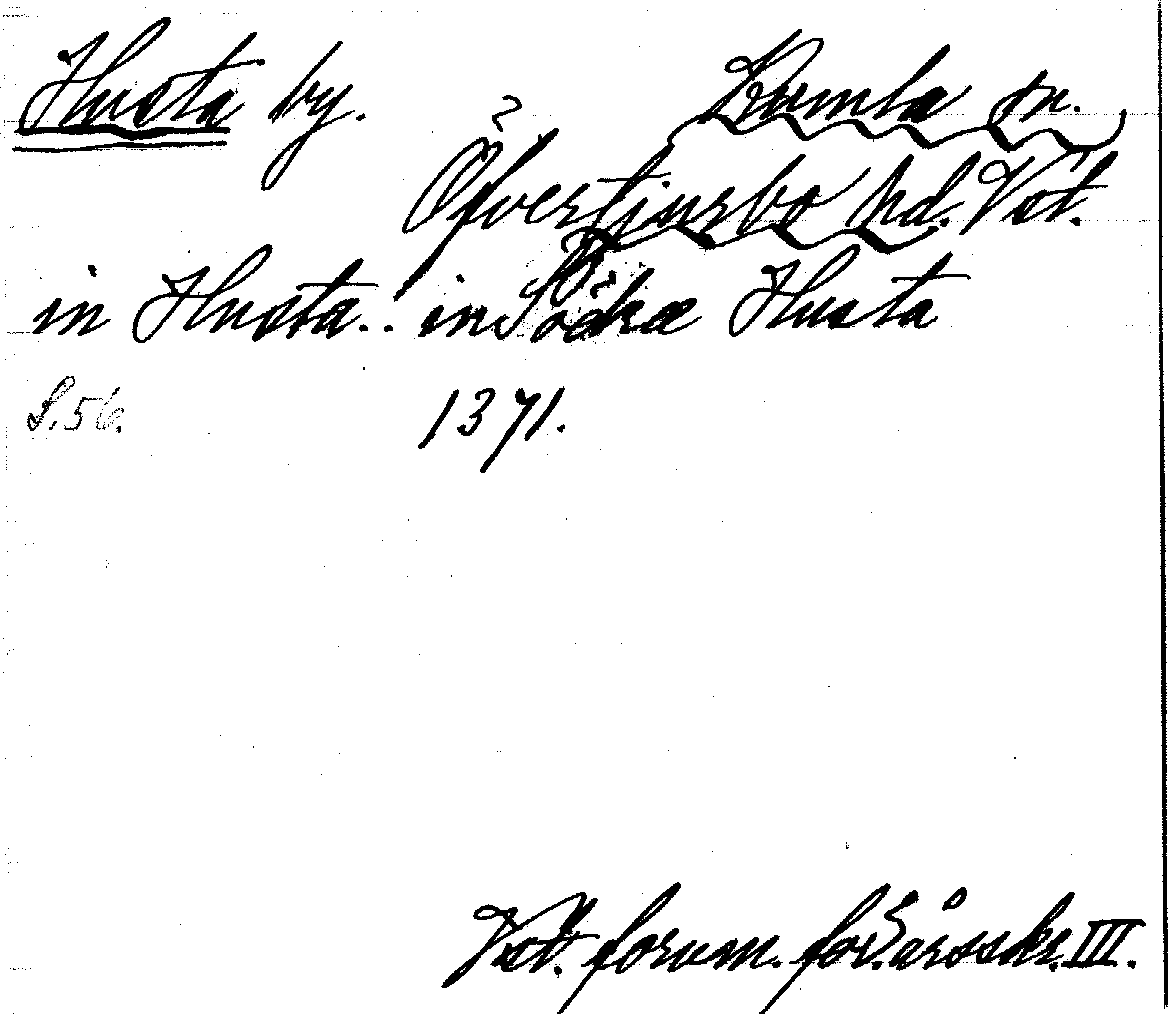 Husta by. Kumla sn.
Öfvertjurbo hd. Vst.
in Husta.. in Södra Husta
S. 56. 1371.
Vst. fornm. för. årsskr. III.